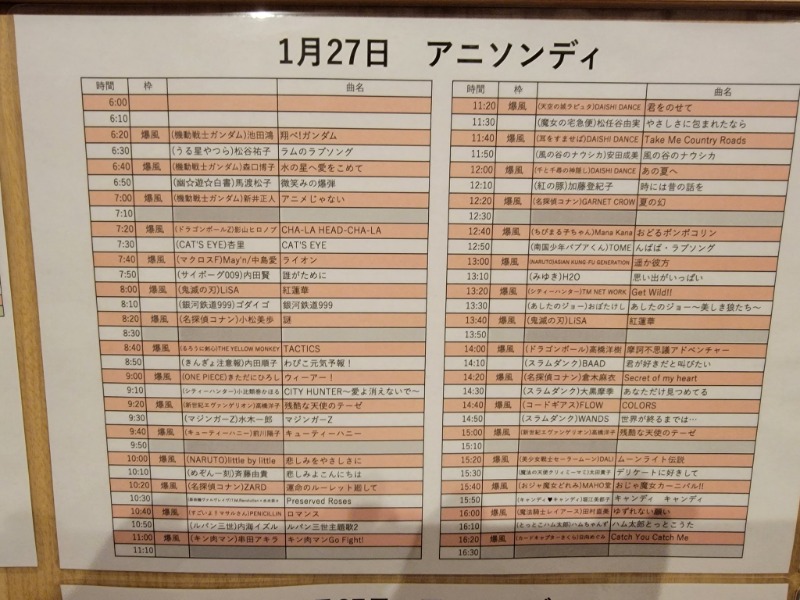 1月27日 アニソンディ
時間 枠 曲名
6:00
6:10
6:20 爆風 (機動戦士ガンダム)池田鴻 翔べ!ガンダム
6:30 (うる星やつら)松谷祐子 ラムのラブソング
6:40 爆風 (機動戦士ガンダム)森口博子 水の星へ愛をこめて
6:50 (幽☆遊☆白書)馬渡松子 微笑みの爆弾
7:00 爆風 (機動戦士ガンダム)新井正人 アニメじゃない
7:10
7:20 爆風 (ドラゴンボールZ)影山ヒロノブ CHA-LA HEAD-CHA-LA
7:30 (CAT'S EYE)杏里 CAT'S EYE
7:40 爆風 (マクロスF)May'n/中島愛 ライオン
7:50 (サイボーグ009)内田賢 誰がために
8:00 爆風 (鬼滅の刃)LiSA 紅蓮華
8:10 (銀河鉄道999)ゴダイゴ 銀河鉄道999
8:20 爆風 (名探偵コナン)小松美歩 謎
8:30
8:40 爆風 (るろうに剣心)THE YELLOW MONKEY TACTICS
8:50 (きんぎょ注意報)内田順子 わぴこ元気予報!
9:00 爆風 (ONE PIECE)きただにひろし ウィーアー!
9:10 (シティーハンター)小比類巻かほる CITY HUNTER〜愛よ消えないで〜
9:20 爆風 (新世紀エヴァンゲリオン)高橋洋子 残酷な天使のテーゼ
9:30 (マジンガーZ)水木一郎 マジンガーZ
9:40 爆風 (キューティーハニー)前川陽子 キューティーハニー
9:50
10:00 爆風 (NARUTO)little by little 悲しみをやさしさに
10:10 (めぞん一刻)斉藤由貴 悲しみよこんにちは
10:20 爆風 (名探偵コナン)ZARD 運命のルーレット廻して
10:30 Preserved Roses
10:40 爆風 (すごいよ!マサルさん)PENICILLIN ロマンス
10:50 (ルパン三世)内海イズル ルパン三世主題歌2
11:00 爆風 (キン肉マン)串田アキラ キン肉マンGo Fight!
11:10
時間 枠 曲名
11:20 爆風 (天空の城ラピュタ)DAISHI DANCE 君をのせて
11:30 (魔女の宅急便)松任谷由実 やさしさに包まれたなら
11:40 爆風 (耳をすませば)DAISHI DANCE Take Me Country Roads
11:50 (風の谷のナウシカ)安田成美 風の谷のナウシカ
12:00 爆風 (千と千尋の神隠し)DAISHI DANCE あの夏へ
12:10 (紅の豚)加藤登紀子 時には昔の話を
12:20 爆風 (名探偵コナン)GARNET CROW 夏の幻
12:30
12:40 爆風 (ちびまる子ちゃん)Mana Kana おどるポンポコリン
12:50 (南国少年パプアくん)TOME んばば・ラブソング
13:00 爆風 (NARUTO)ASIAN KUNG-FU GENERATION 遥か彼方
13:10 (みゆき)H2O 思い出がいっぱい
13:20 爆風 (シティーハンター)TM NETWORK Get Wild!!
13:30 (あしたのジョー)おぼたけし あしたのジョー〜美しき狼たち〜
13:40 爆風 (鬼滅の刃)LiSA 紅蓮華
13:50
14:00 爆風 (ドラゴンボール)高橋洋樹 摩訶不思議アドベンチャー
14:10 (スラムダンク)BAAD 君が好きだと叫びたい
14:20 爆風 (名探偵コナン)倉木麻衣 Secret of my heart
14:30 (スラムダンク)大黒摩季 あなただけ見つめてる
14:40 爆風 (コードギアス)FLOW COLORS
14:50 (スラムダンク)WANDS 世界が終るまでは…
15:00 爆風 (新世紀エヴァンゲリオン)高橋洋子 残酷な天使のテーゼ
15:10
15:20 爆風 (美少女戦士セーラームーン)DALI ムーンライト伝説
15:30 (魔法の天使クリィミーマミ)太田貴子 デリケートに好きして
15:40 爆風 (おジャ魔女どれみ)MAHO堂 おジャ魔女カーニバル!!
15:50 (キャンディ♥キャンディ)堀江美都子 キャンディ キャンディ
16:00 爆風 (魔法騎士レイアース)田村直美 ゆずれない願い
16:10 (とっとこハム太郎)ハムちゃんず ハム太郎とっとこうた
16:20 爆風 (カードキャプターさくら)日向めぐみ Catch You Catch Me
16:30